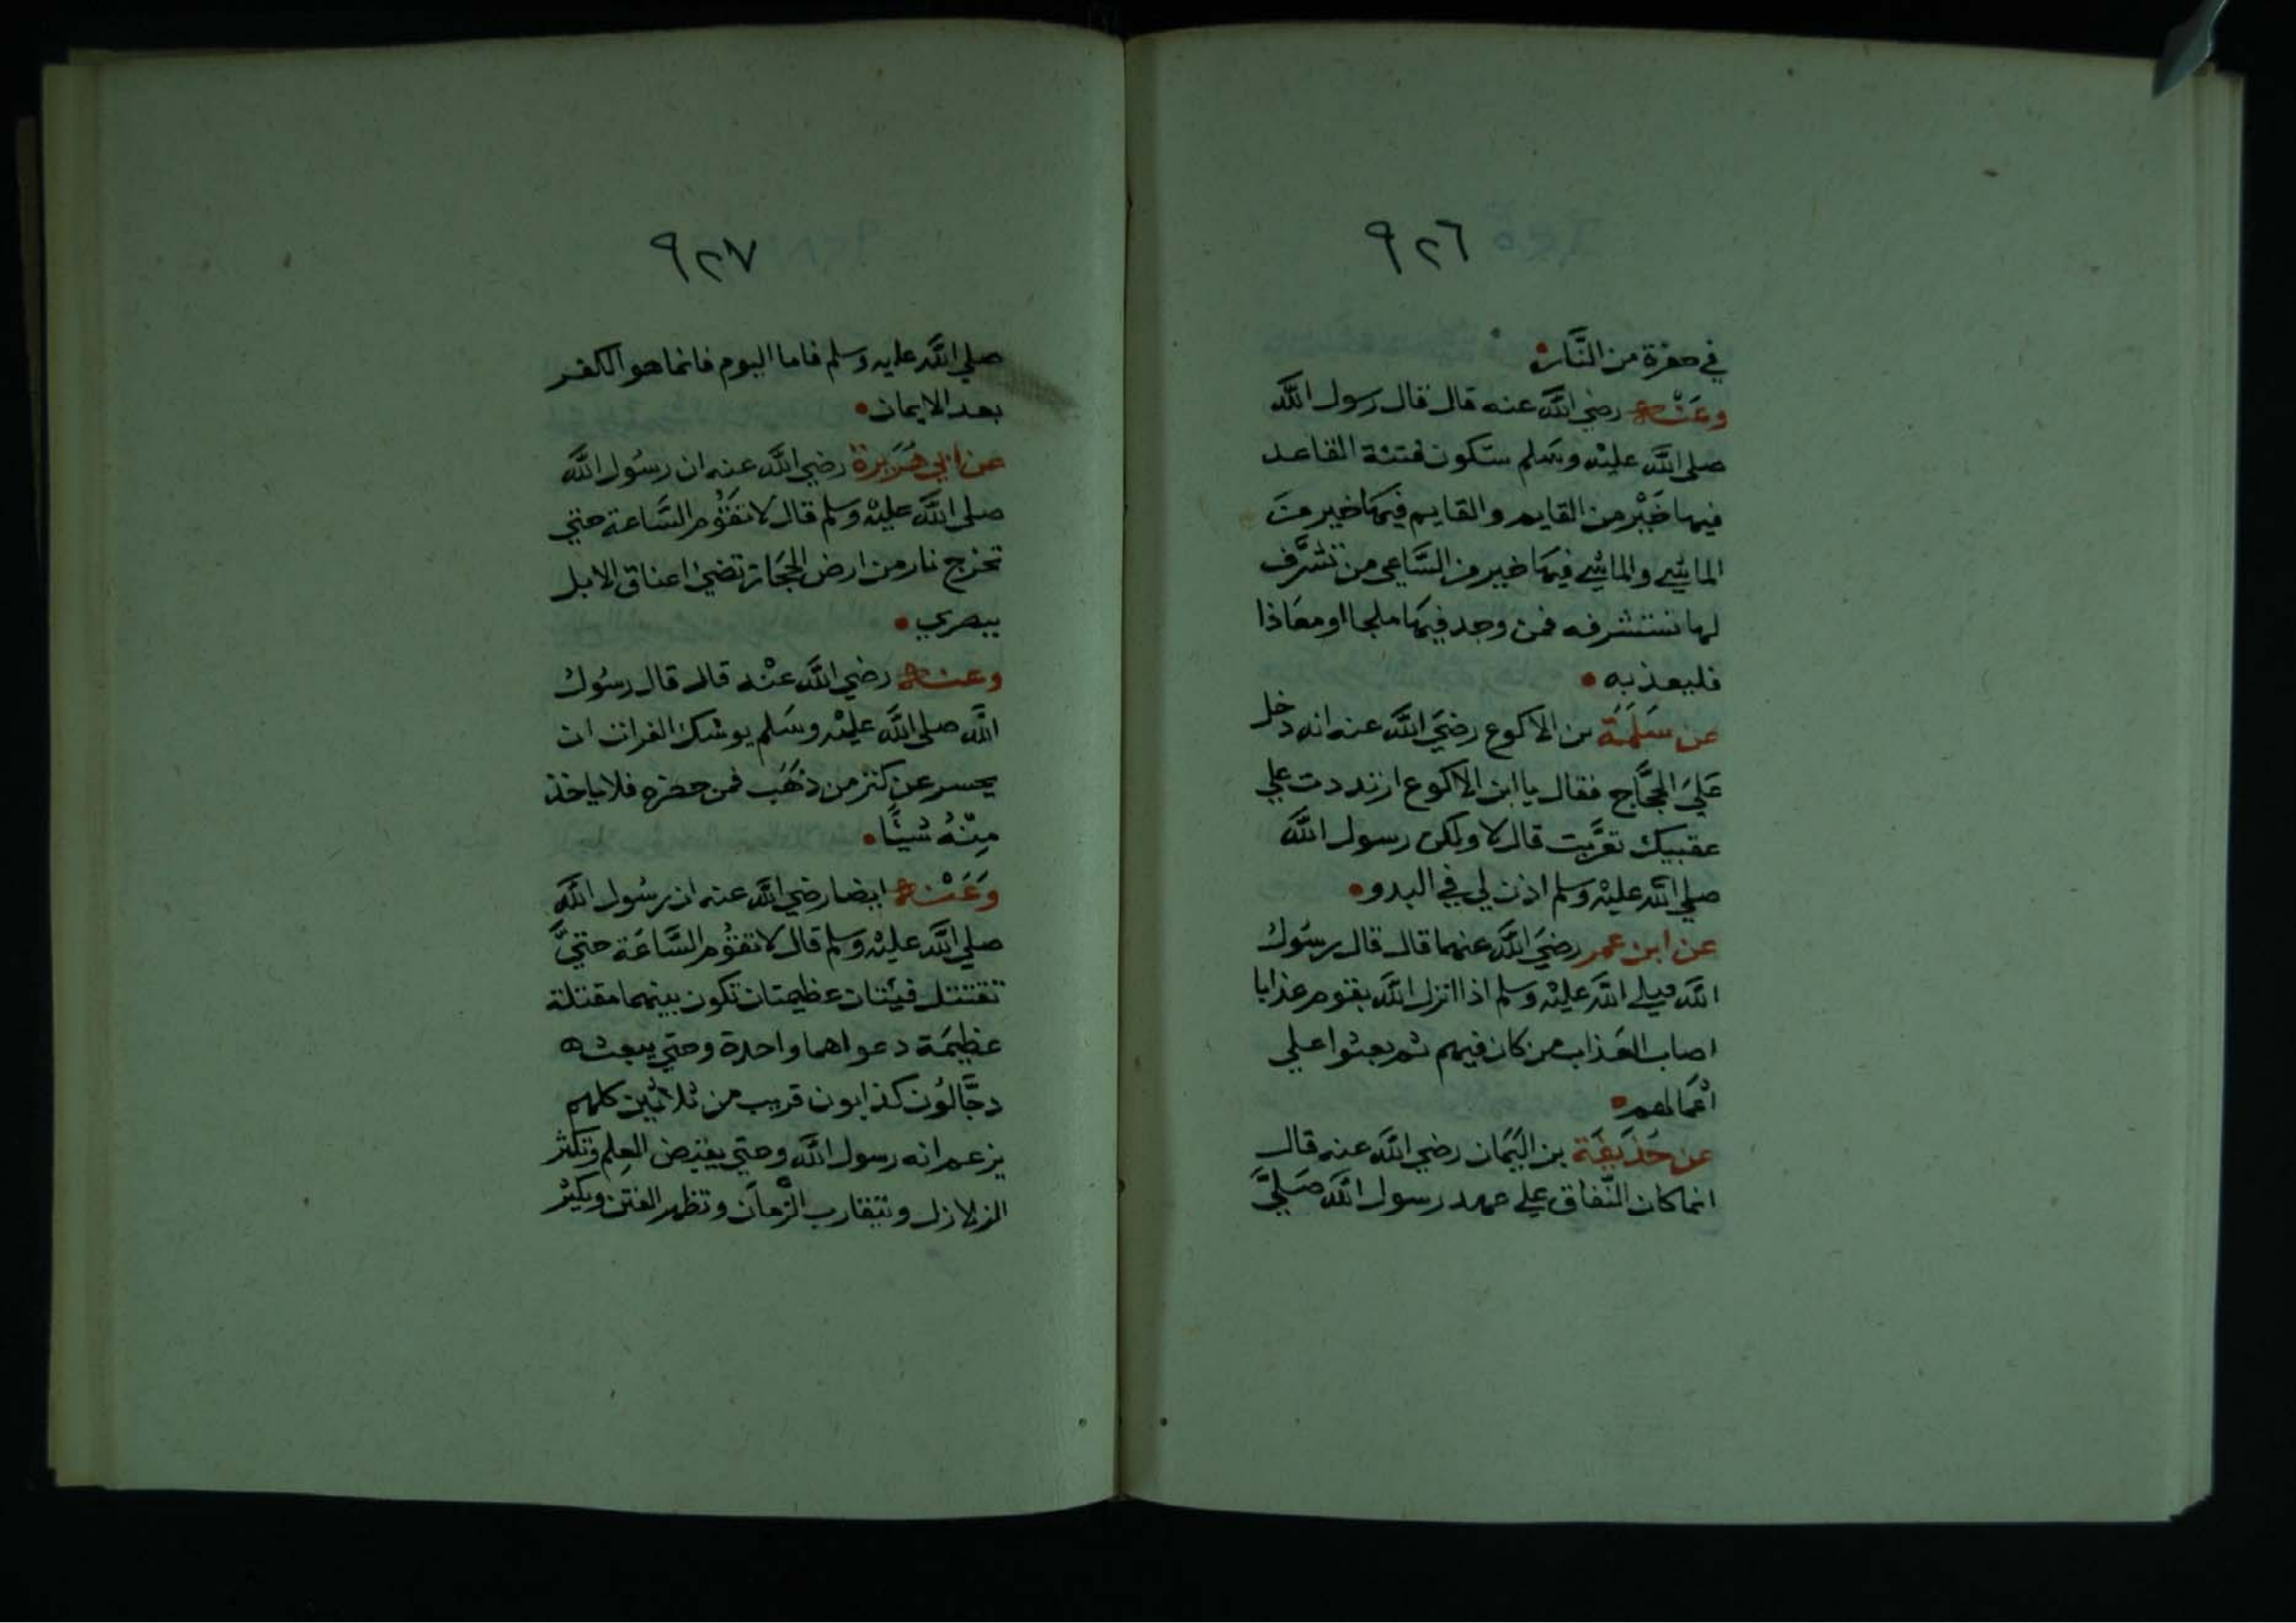 ٩٢٦
في حفرة من النَّار
وعَنْه رضي اللَّه عنه قال قال رسول اللَّه
صلى اللَّه عليْه وسَلم ستكون فتنة القاعد
فيها خَيْر من القايم والقايم فيهَا خير منَ
الماشي والماشي فيهَا خير من السَّاعي من تَشرَّف
لها تستشرفه فمن وجد فيهَا ملجا او معَاذا
فليعذ به
عن سَلَمَة بن الاكوع رضيَ اللَّه عنه انه دخل
عَليَ الحجَّاج فقال يا ابن الاكوع ارتددت علي
عقبيك تعرَّبت قال لا ولكن رسول اللَّه
صلي اللَّه عليْه وسلم اذن لي في البدو
عن ابن عمر رضيَ اللَّه عنهما قال قال رسُول
اللَّه صلي اللَّه عليْه وسلم اذا انزل اللَّه بقوم عذابا
اصاب العَذاب من كان فيهم ثم بعثوا علي
اعْمَالهم
عن حُذَيفَة بن اليَمَان رضي اللَّه عنه قال
انما كان النّفاق علي عهد رسول اللَّه صَليَّ
٩٢٧
صلي اللَّه عليه وسلم فاما اليوم فانما هو الكفر
بعد الايمان
عن ابي هُرَيرة رضي اللَّه عنه ان رسُول اللَّه
صلى اللَّه عليْه وسلم قال لا تقُوم السَّاعة حتي
تخرج نار من ارض الحجَاز تضيئ اعناق الابل
ببصري
وعنه رضي اللَّه عنْه قال قال رسُول
اللَّه صلى اللَّه عليْه وسَلم يوشك الفرات ان
يحسر عن كنز من ذهَب فمن حضره فلا ياخذ
مِنْهُ شيئًا
وَعَنْه ايضا رضي اللَّه عنه ان رسُول اللَّه
صلي اللَّه عليْه وسلم قال لا تقُوم السَّاعَة حتيَّ
تقتتل فيئتان عظيمتان تكون بينهما مقتلة
عظيمَة دعواهما واحدة وحتي يبعث
دجَّالوُن كذابون قريب من ثلاثين كلهم
يزعم انه رسول اللَّه وحتي يقبض العِلم وتكثر
الزلازل ويتقارب الزْمان وتظهر الفتن ويكثر